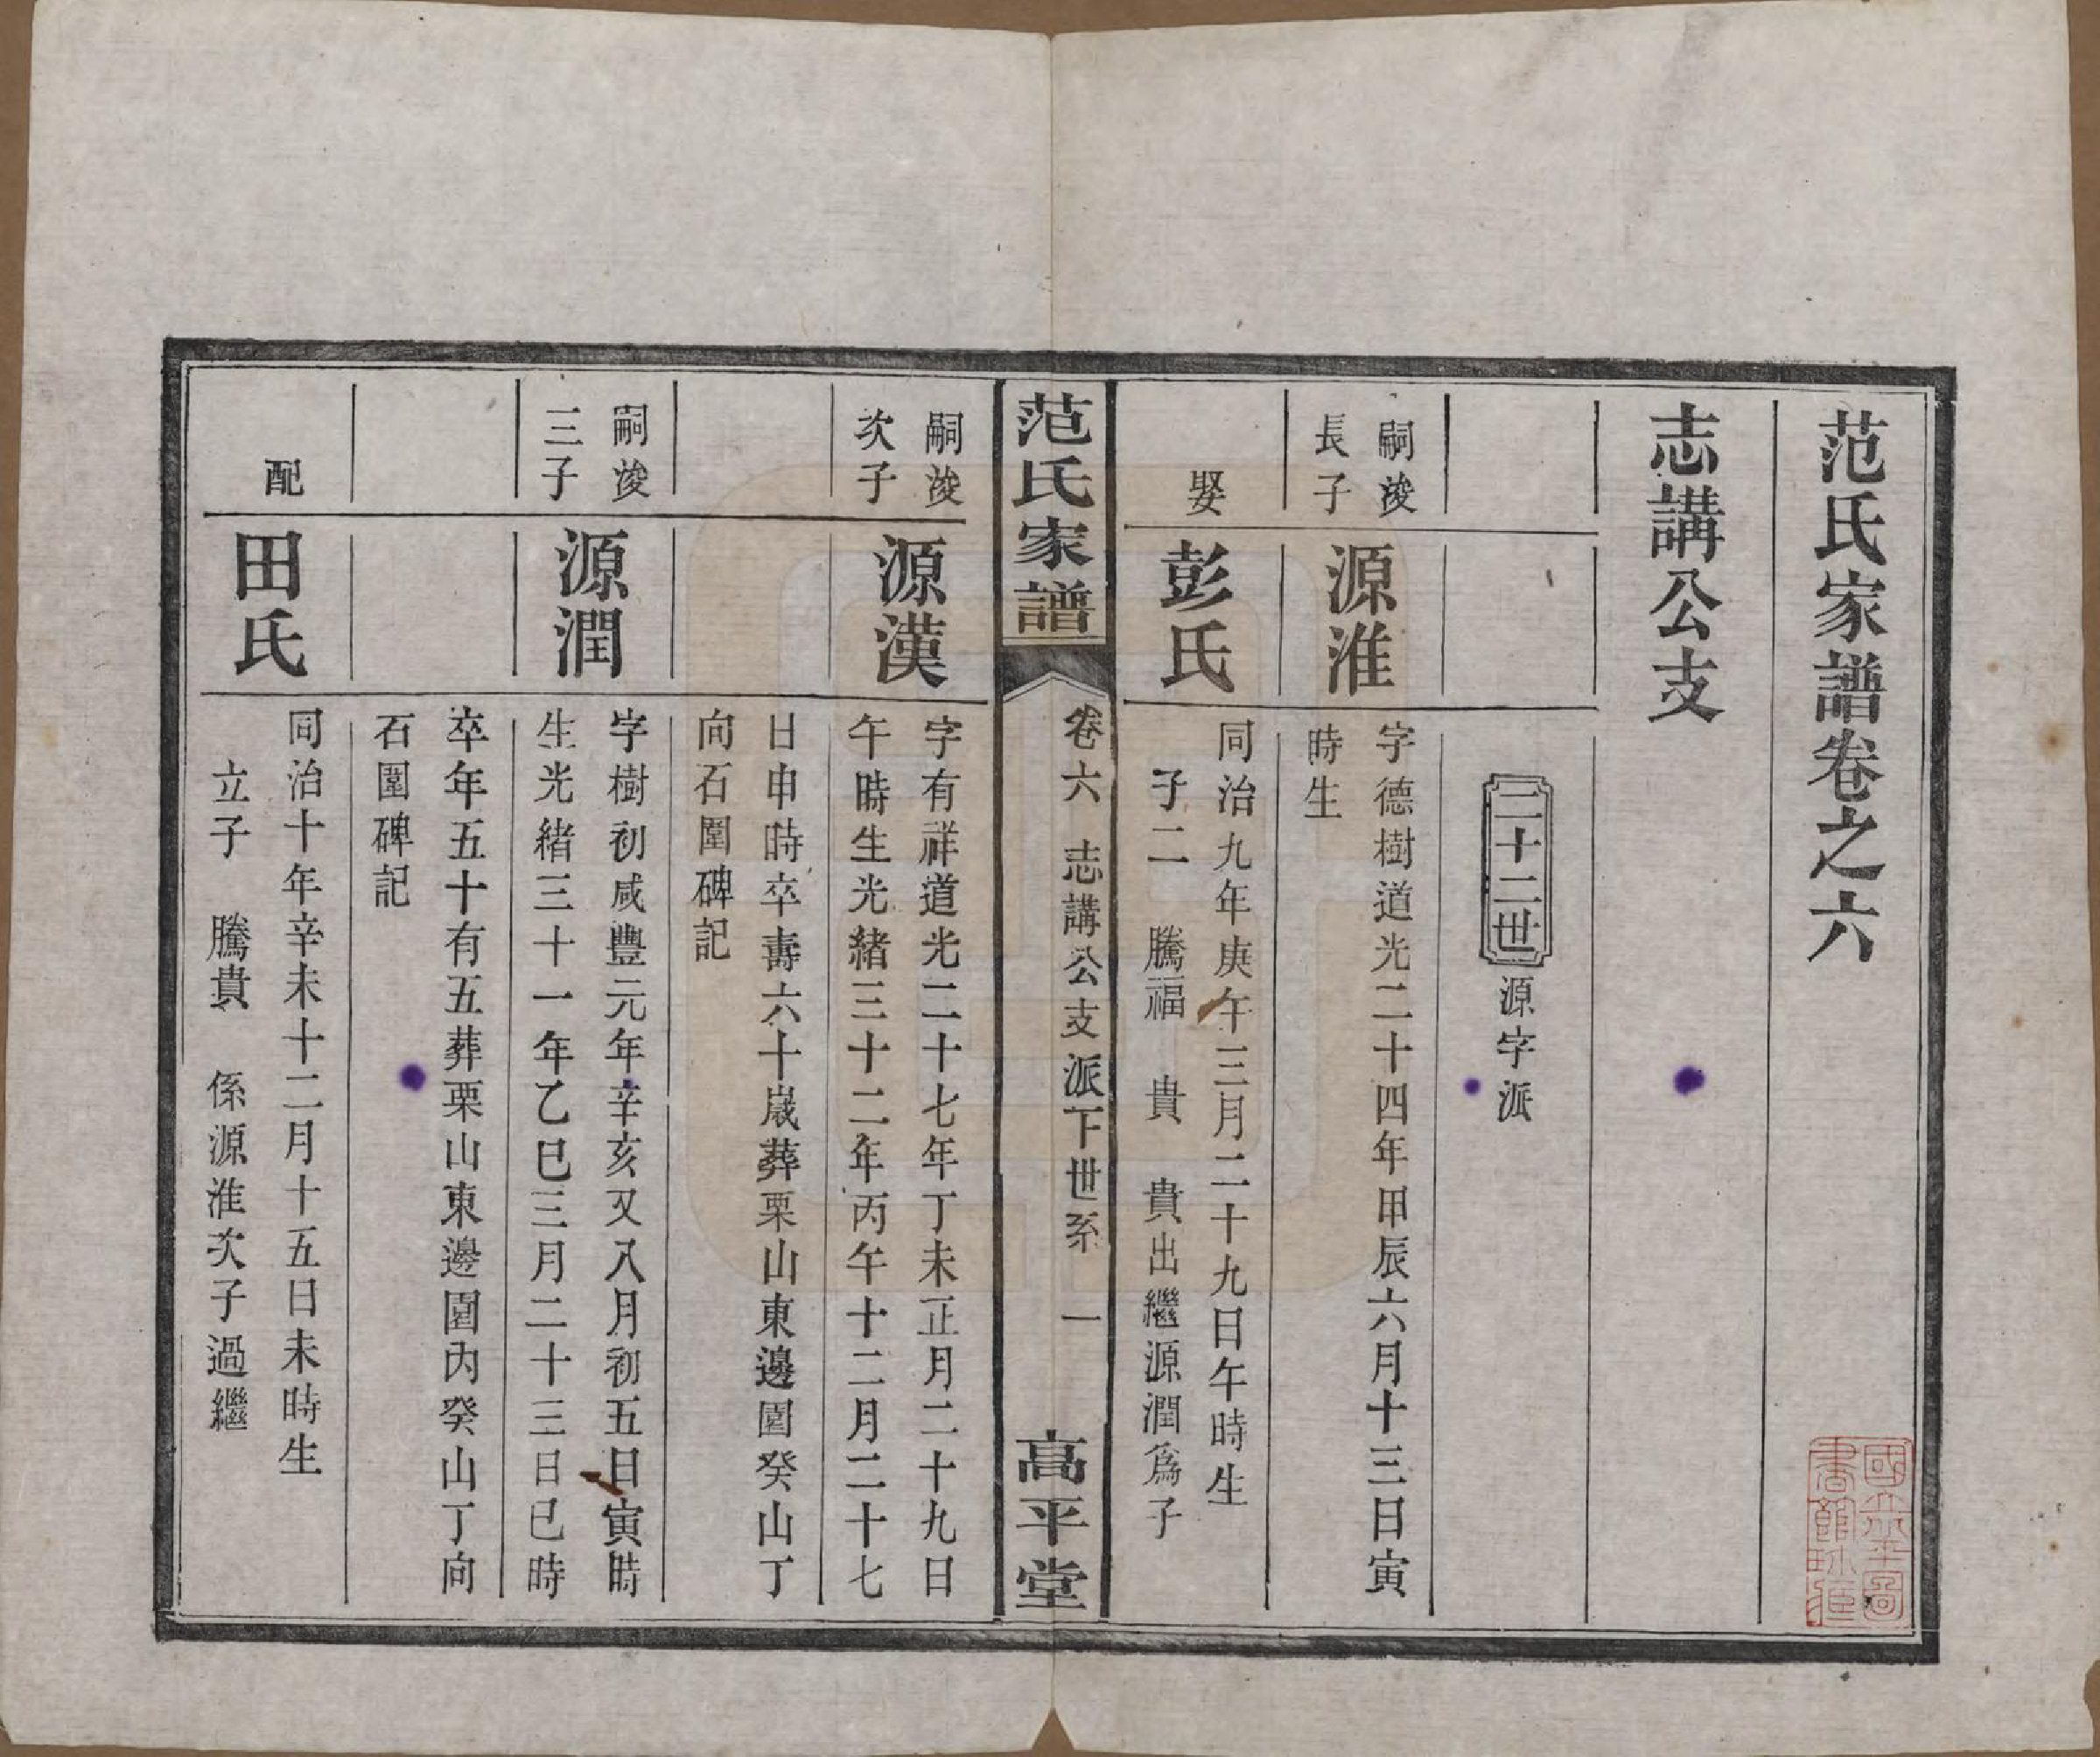 范氏家譜卷之六
志講公支
二十二世 源字派
嗣浚
長子
源淮
字德樹道光二十四年甲辰六月十三日寅
時生
娶
彭氏
同治九年庚午三月二十九日午時生
子二 騰福 貴 貴出繼源潤爲子
范氏家譜 卷六 志講公支派下世系 一 高平堂
嗣浚
次子
源漢
字有祥道光二十七年丁未正月二十九日
午時生光緒三十二年丙午十二月二十七
日申時卒壽六十歲葬栗山東邊園癸山丁
向石圍碑記
嗣浚
三子
源潤
字樹初咸豐元年辛亥又八月初五日寅時
生光緒三十一年乙巳三月二十三日巳時
卒年五十有五葬栗山東邊園內癸山丁向
石圍碑記
配
田氏
同治十年辛未十二月十五日未時生
立子 騰貴 係源淮次子過繼
國立北平圖
書館珍藏